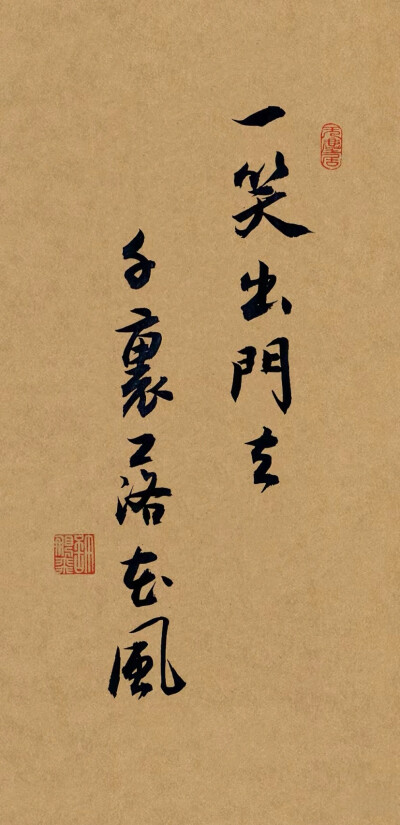 一笑出門去
千裏落花風